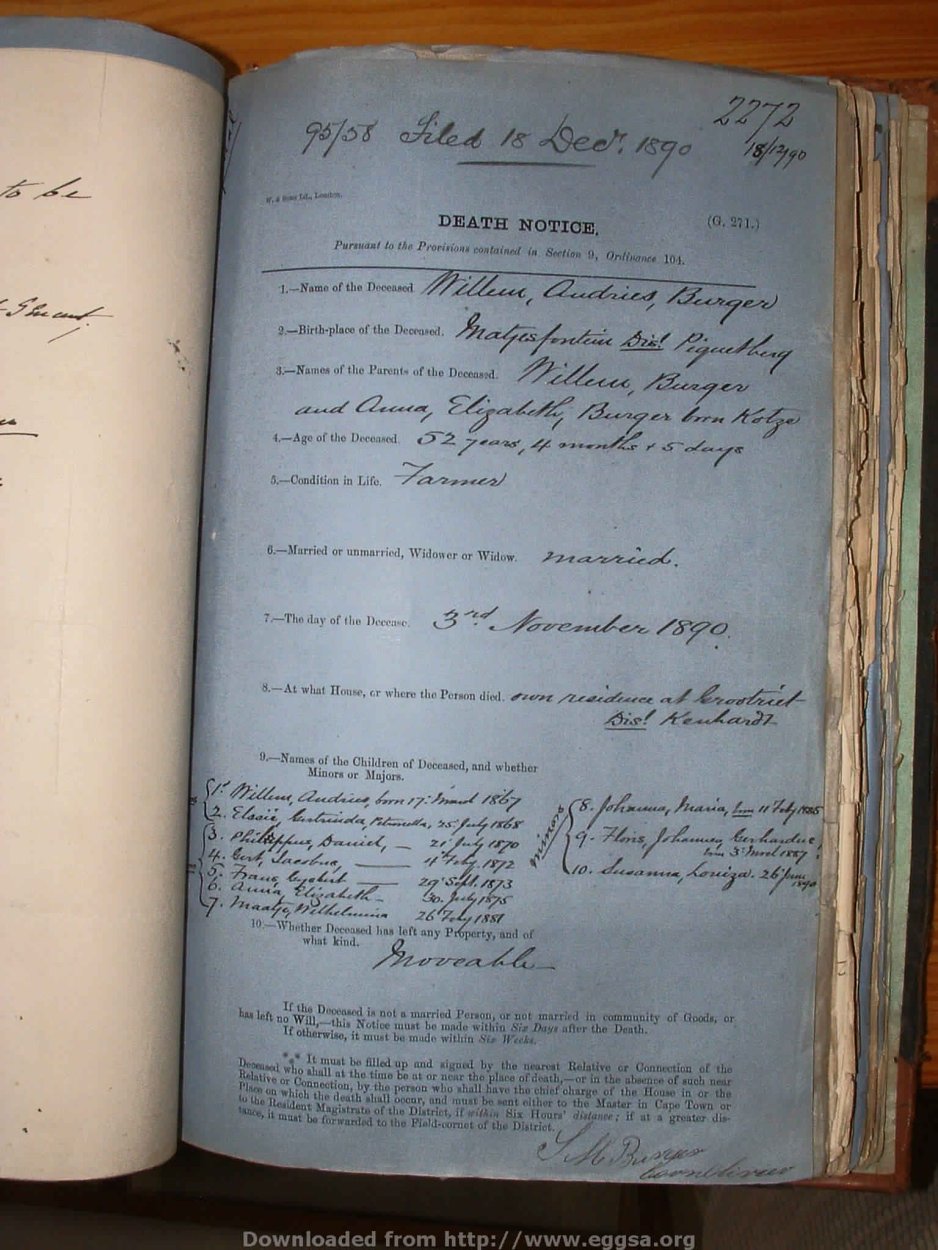 to be
2272
95/58 Filed 18 Decr. 1890
18/12/90
W. & Sons Ld., London.
DEATH NOTICE,
(G. 271.)
Pursuant to the Provisions contained in Section 9, Ordinance 104.
1.—Name of the Deceased Willem, Andries, Burger
2.—Birth-place of the Deceased. Matjesfontein Dist Piquetberg
3.—Names of the Parents of the Deceased. Willem, Burger
and Anna, Elizabeth, Burger born Kotze
4.—Age of the Deceased 52 years, 4 months + 5 days
5.—Condition in Life. Farmer
6.—Married or unmarried, Widower or Widow. married.
7.—The day of the Decease. 3rd November 1890.
8.—At what House, or where the Person died. own residence at Grootriet
Dist Kenhardt
9.—Names of the Children of Deceased, and whether
Minors or Majors.
1. Willem, Andries, born 17 March 1867
2. Elssie, Gertruida, Petronella, 25 July 1868
3. Philippus, Daniel, — 21 July 1870
4. Gert, Jacobus, — 4 Feby. 1872
5. Frans, — 29 Sept. 1873
6. Anna, Elizabeth — 30. July 1875
7. Maatje, Wilhelmina 26 Feby 1881
minors
8. Johanna, Maria, born 11 Feby 1885
9. Floris, Johannes, Gerhardus,
born 3 1887
10. Susanna, Louiza. 26 June
1890
10.—Whether Deceased has left any Property, and of
what kind.
Moveable
If the Deceased is not a married Person, or not married in community of Goods, or
has left no Will,—this Notice must be made within Six Days after the Death.
If otherwise, it must be made within Six Weeks.
*** It must be filled up and signed by the nearest Relative or Connection of the
Deceased who shall at the time be at or near the place of death,—or in the absence of such near
Relative or Connection, by the person who shall have the chief charge of the House in or the
Place on which the death shall occur, and must be sent either to the Master in Cape Town or
to the Resident Magistrate of the District, if within Six Hours' distance; if at a greater dis-
tance, it must be forwarded to the Field-cornet of the District.
Burger
Downloaded from http://www.eggsa.org